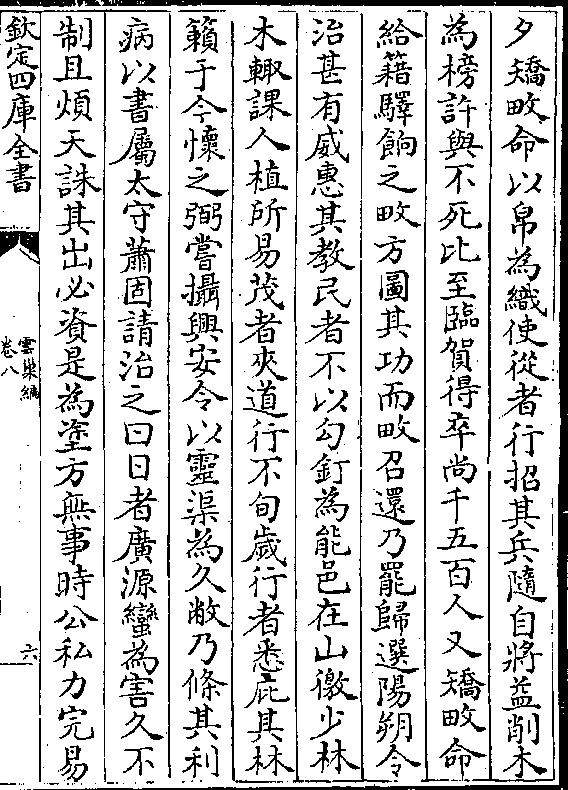 夕矯畋命以帛為織使從者行招其兵隨自將益削木
為榜許與不死比至臨賀得卒尚千五百人又矯畋命
給籍驛餉之畋方圖其功而畋召還乃罷歸選陽朔令
治甚有威惠其教民者不以勾釘為能邑在山徼少林
木輙課人植所易茂者夾道行不旬歲行者悉庇其林
籟于今懷之弼嘗攝興安令以靈渠為久敝乃條其利
病以書屬太守蕭固請治之曰日者廣源蠻為害久不
制且煩天誅其出必資是為塗方無事時公私力完易
欽定四庫全書
雲巢編
卷八
六